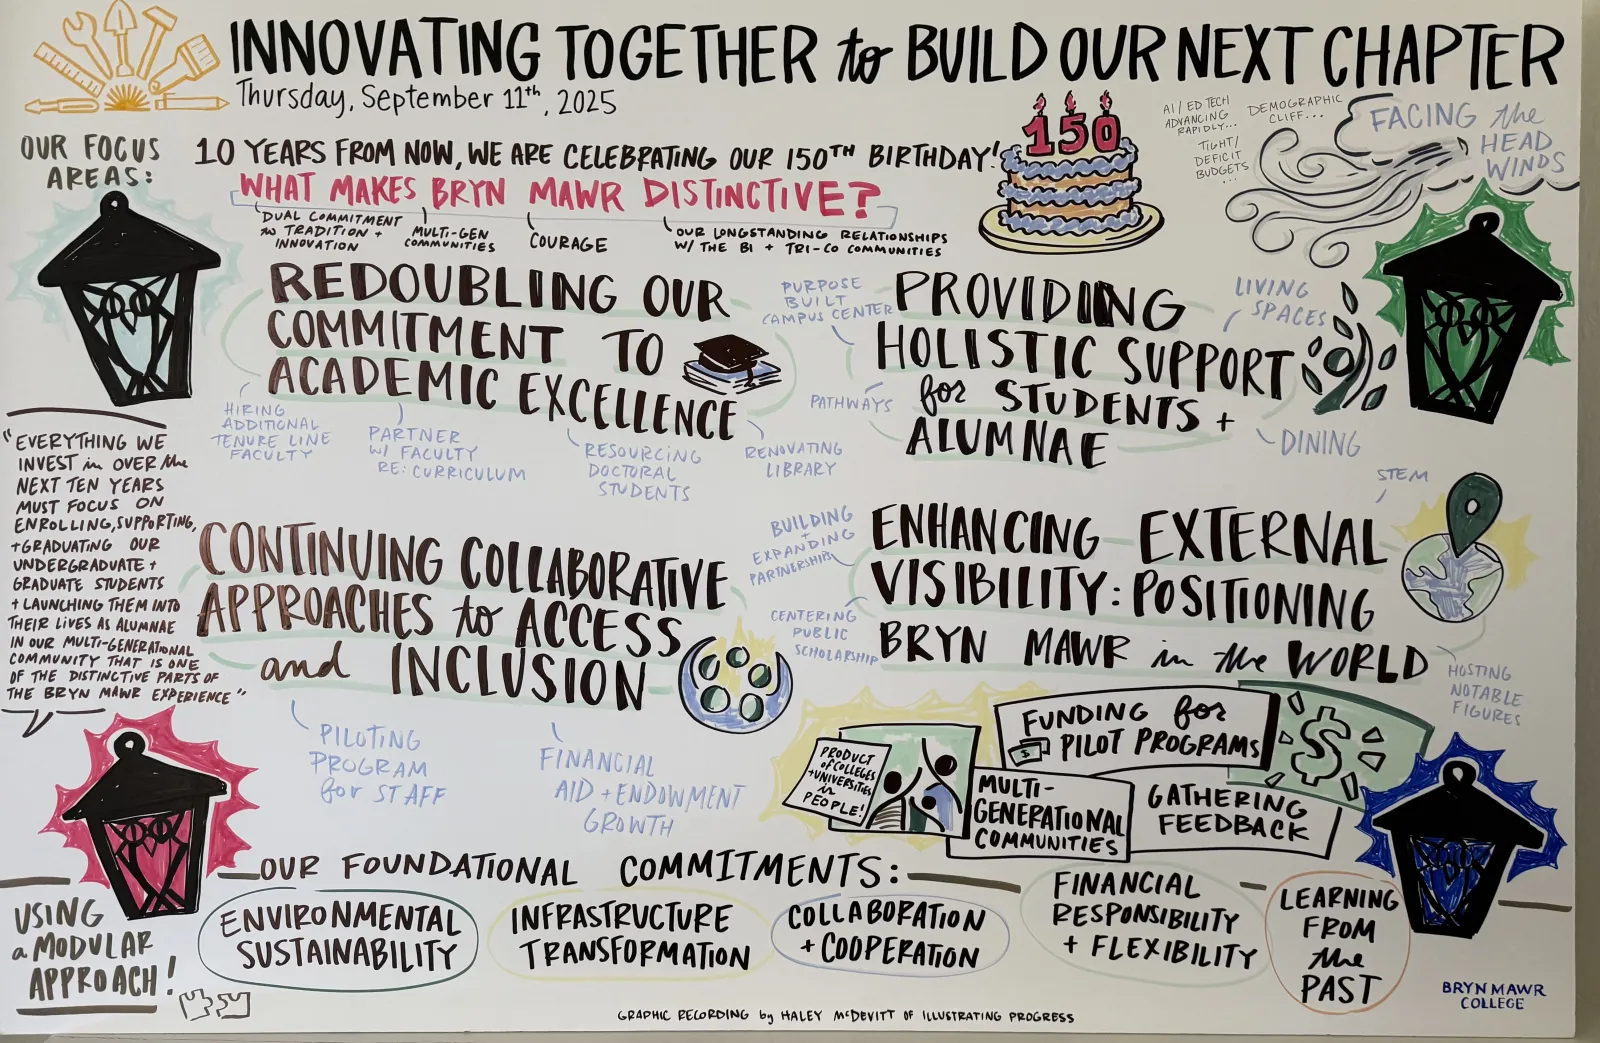 INNOVATING TOGETHER to BUILD OUR NEXT CHAPTER
Thursday, September 11th, 2025
OUR FOCUS
AREAS:
10 YEARS FROM NOW, WE ARE CELEBRATING OUR 150TH BIRTHDAY!
150
WHAT MAKES BRYN MAWR DISTINCTIVE?
DUAL COMMITMENT
to TRADITION +
INNOVATION
MULTI-GEN
COMMUNITIES
COURAGE
OUR LONGSTANDING RELATIONSHIPS
W/ THE BI + TRI-CO COMMUNITIES
AI/ED TECH
ADVANCING
RAPIDLY...
DEMOGRAPHIC
CLIFF...
TIGHT/
DEFICIT
BUDGETS
...
FACING the
HEAD
WINDS
REDOUBLING OUR
COMMITMENT TO
ACADEMIC EXCELLENCE
HIRING
ADDITIONAL
TENURE LINE
FACULTY
PARTNER
W/ FACULTY
RE: CURRICULUM
RESOURCING
DOCTORAL
STUDENTS
RENOVATING
LIBRARY
PURPOSE
BUILT
CAMPUS CENTER
PROVIDING
HOLISTIC SUPPORT
for STUDENTS +
ALUMNAE
LIVING
SPACES
PATHWAYS
DINING
"EVERYTHING WE
INVEST in OVER the
NEXT TEN YEARS
MUST FOCUS ON
ENROLLING, SUPPORTING,
+ GRADUATING OUR
UNDERGRADUATE +
GRADUATE STUDENTS
+ LAUNCHING THEM INTO
THEIR LIVES AS ALUMNAE
IN OUR MULTI-GENERATIONAL
COMMUNITY THAT IS ONE
OF THE DISTINCTIVE PARTS OF
THE BRYN MAWR EXPERIENCE"
CONTINUING COLLABORATIVE
APPROACHES to ACCESS
and INCLUSION
PILOTING
PROGRAM
for STAFF
FINANCIAL
AID + ENDOWMENT
GROWTH
BUILDING
+
EXPANDING
PARTNERSHIPS
CENTERING
PUBLIC
SCHOLARSHIP
STEM
ENHANCING EXTERNAL
VISIBILITY: POSITIONING
BRYN MAWR in the WORLD
HOSTING
NOTABLE
FIGURES
PRODUCT
of COLLEGES
+ UNIVERSITIES
in
PEOPLE!
FUNDING for
$ PILOT PROGRAMS
$
MULTI-
GENERATIONAL
COMMUNITIES
GATHERING
FEEDBACK
USING
a MODULAR
APPROACH!
OUR FOUNDATIONAL COMMITMENTS:
ENVIRONMENTAL
SUSTAINABILITY
INFRASTRUCTURE
TRANSFORMATION
COLLABORATION
+ COOPERATION
FINANCIAL
RESPONSIBILITY
+ FLEXIBILITY
LEARNING
FROM
the
PAST
BRYN MAWR
COLLEGE
GRAPHIC RECORDING by HALEY McDEVITT OF ILLUSTRATING PROGRESS